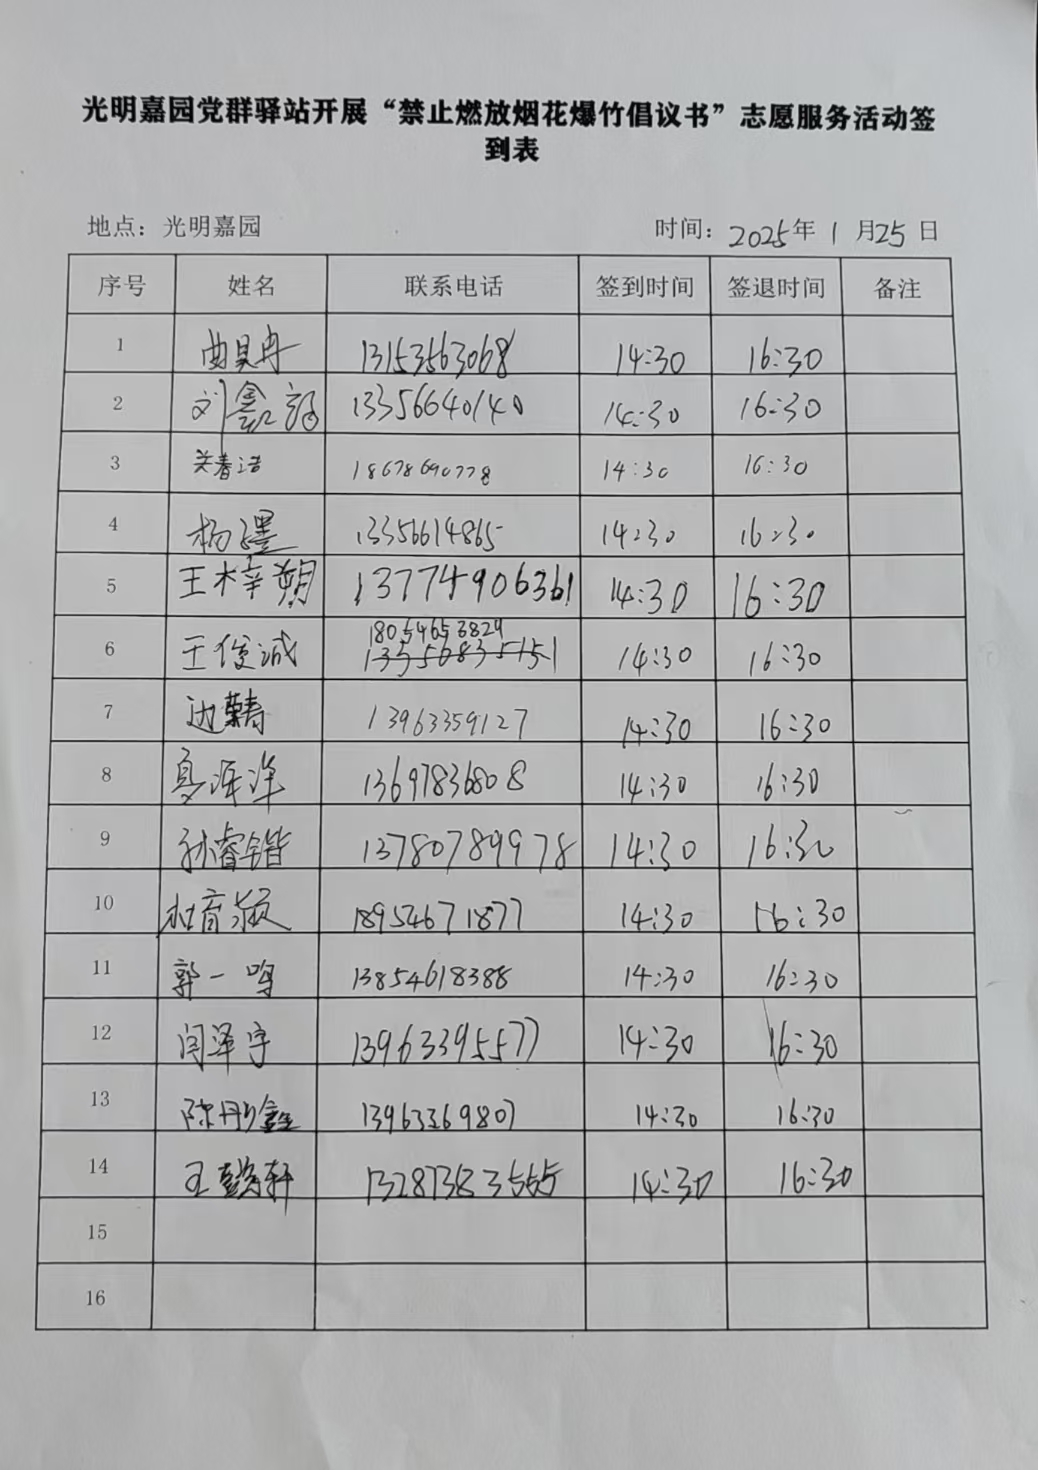 光明嘉园党群驿站开展“禁止燃放烟花爆竹倡议书”志愿服务活动签
到表
地点：光明嘉园 时间：2025年 1 月25 日
序号 姓名 联系电话 签到时间 签退时间 备注
1 曲昊冉 13153563068 14:30 16:30
2 刘鑫 13356640140 14:30 16:30
3 关春浩 18678690778 14:30 16:30
4 杨 13356614865 14:30 16:30
5 王梓朔 13774906361 14:30 16:30
18054653829
6 王俊诚 13356835151 14:30 16:30
7 边 13963359127 14:30 16:30
8 夏泽洋 13697836808 14:30 16:30
9 孙睿锴 13780789978 14:30 16:30
10 杜育颖 18954671877 14:30 16:30
11 郭一鸣 13854618388 14:30 16:30
12 闫泽宇 13963395577 14:30 16:30
13 陈彤鑫 13963369807 14:30 16:30
14 王懿轩 13287383555 14:30 16:30
15
16